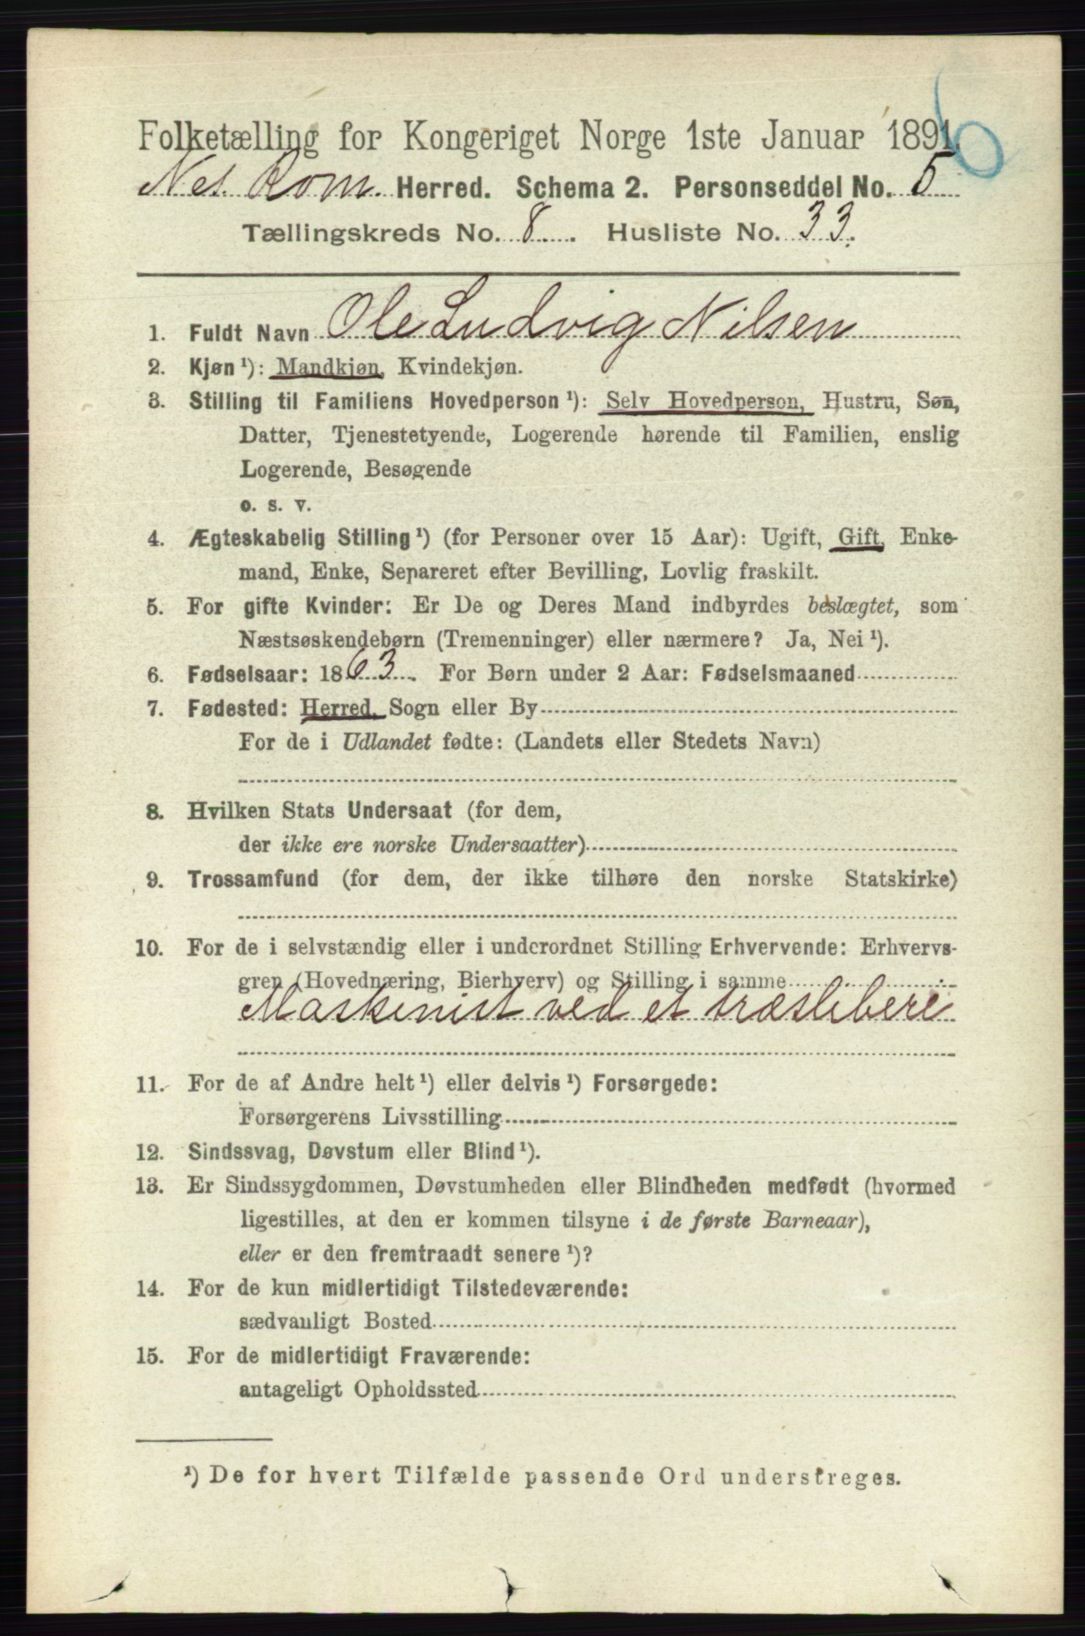 Folketælling for Kongeriget Norge 1ste Januar 1891.
6
Nes. Rom. Herred. Schema 2. Personseddel No. 5
Tællingskreds No. 8. Husliste No. 33.
1. Fuldt Navn Ole Ludvig Nilsen
2. Kjøn ¹): Mandkjøn, Kvindekjøn.
3. Stilling til Familiens Hovedperson ¹): Selv Hovedperson, Hustru, Søn,
Datter, Tjenestetyende, Logerende hørende til Familien, enslig
Logerende, Besøgende
o. s. v.
4. Ægteskabelig Stilling ¹) (for Personer over 15 Aar): Ugift, Gift, Enke-
mand, Enke, Separeret efter Bevilling, Lovlig fraskilt.
5. For gifte Kvinder: Er De og Deres Mand indbyrdes beslægtet, som
Næstsøskendebørn (Tremenninger) eller nærmere? Ja, Nei ¹).
6. Fødselsaar: 1863. For Børn under 2 Aar: Fødselsmaaned
7. Fødested: Herred, Sogn eller By
For de i Udlandet fødte: (Landets eller Stedets Navn)
8. Hvilken Stats Undersaat (for dem,
der ikke ere norske Undersaatter)
9. Trossamfund (for dem, der ikke tilhøre den norske Statskirke)
10. For de i selvstændig eller i underordnet Stilling Erhvervende: Erhvervs-
gren (Hovednæring, Bierhverv) og Stilling i samme
Maskinist ved et træsliberi
11. For de af Andre helt ¹) eller delvis ¹) Forsørgede:
Forsørgerens Livsstilling
12. Sindssvag, Døvstum eller Blind ¹).
13. Er Sindssygdommen, Døvstumheden eller Blindheden medfødt (hvormed
ligestilles, at den er kommen tilsyne i de første Barneaar),
eller er den fremtraadt senere ¹)?
14. For de kun midlertidigt Tilstedeværende:
sædvanligt Bosted
15. For de midlertidigt Fraværende:
antageligt Opholdssted
¹) De for hvert Tilfælde passende Ord understreges.